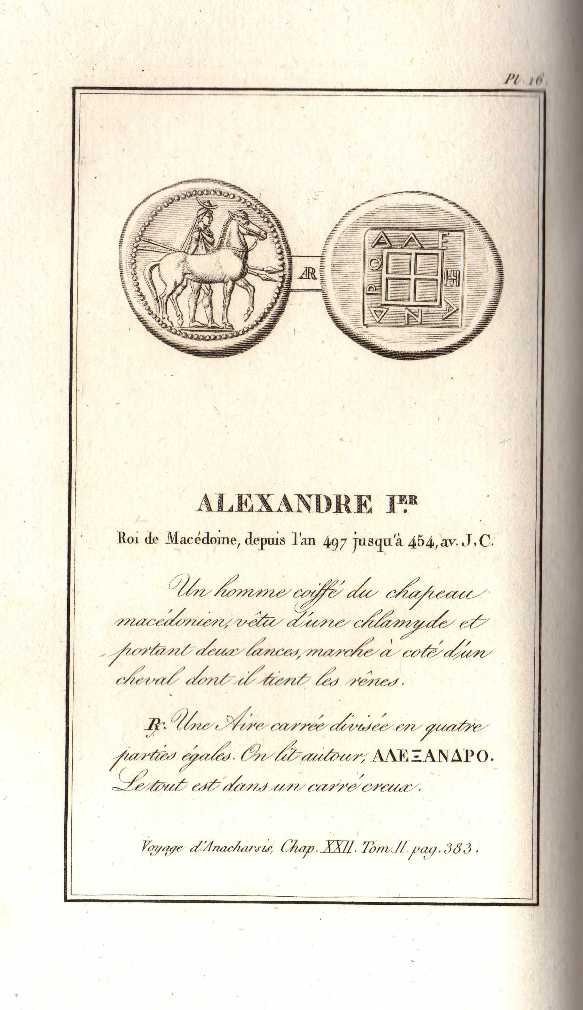 Pl. 16.
ꜸR
ΑΛΕ
Η
ΑΝΔ
ΡΟ
ALEXANDRE I.ER
Roi de Macédoine, depuis l'an 497 jusqu'à 454, av. J. C.
Un homme coiffé du chapeau
macédonien, vêtu d'une chlamyde et
portant deux lances, marche à coté d'un
cheval dont il tient les rênes.
R: Une Aire carrée divisée en quatre
parties égales. On lit autour, ΑΛΕΞΑΝΔΡΟ.
Le tout est dans un carré creux.
Voyage d'Anacharsis, Chap. XXII. Tom. II. pag. 383.